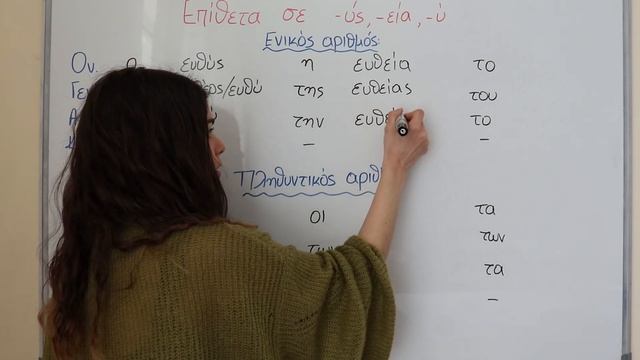 Επίθετα σε -ύς, -εία, -ύ
Ενικός αριθμός:
Ον. ο ευθύς η ευθεία το
Γεν /ευθύ της ευθείας του
την ευθεί το
– –
Πληθυντικός αριθ
οι τα
των των
τα
–